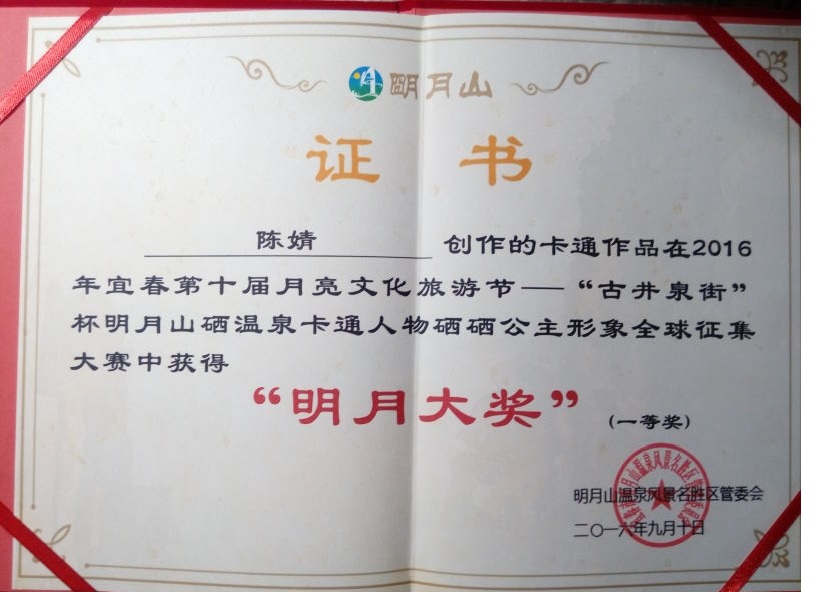 明月山
证 书
陈婧 创作的卡通作品在2016
年宜春第十届月亮文化旅游节——“古井泉街”
杯明月山硒温泉卡通人物硒硒公主形象全球征集
大赛中获得
“明月大奖”(一等奖)
明月山温泉风景名胜区管委会
二〇一六年九月十日